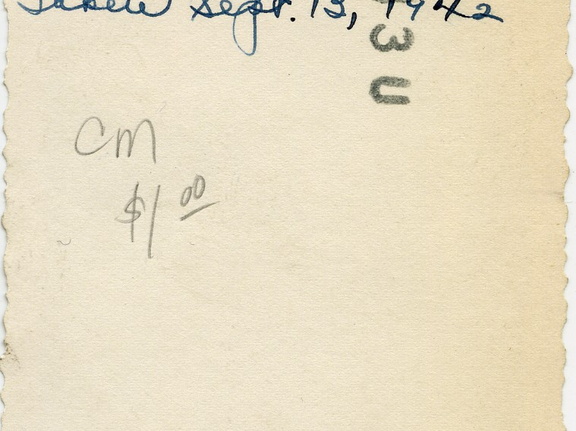 Taken Sept. 13, 1942
3 U
CM
$1 00